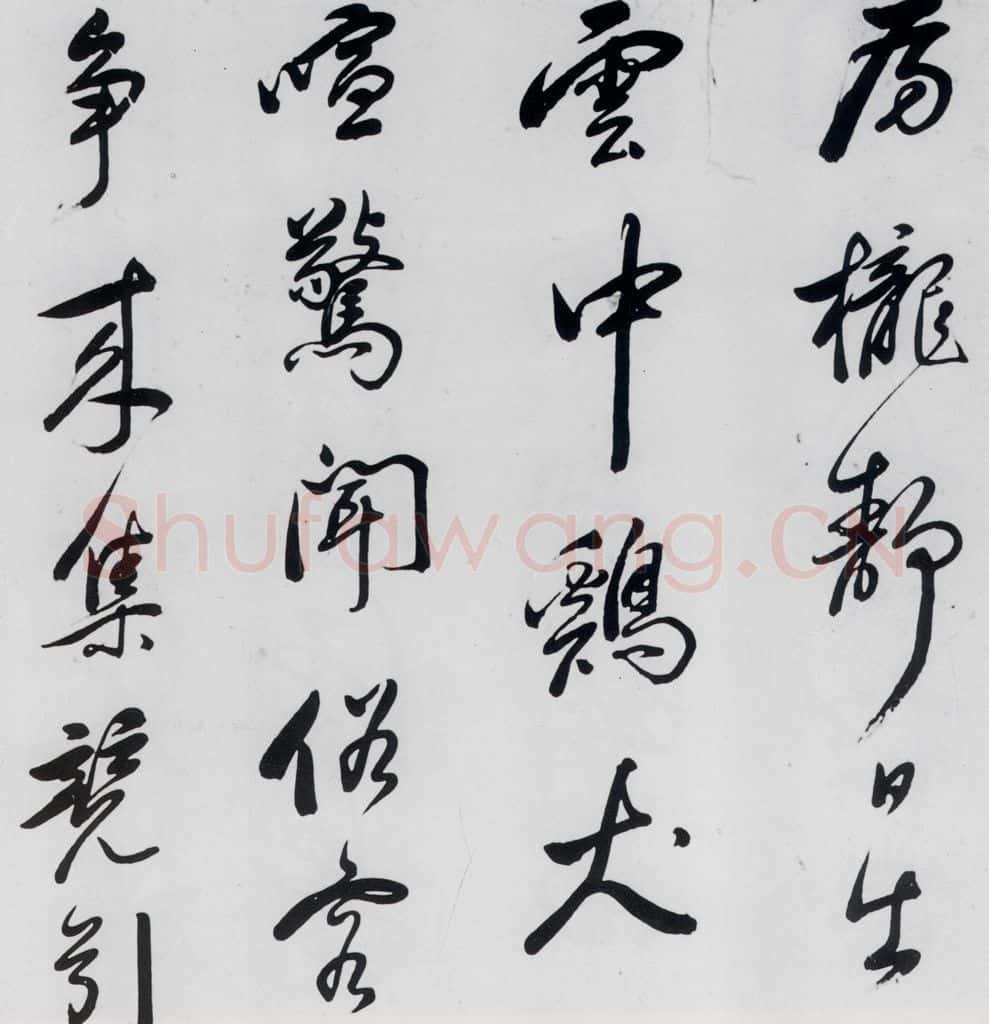 房櫳靜日出
雲中鷄犬
喧驚聞俗客
爭來集競引
Shufawang.CN